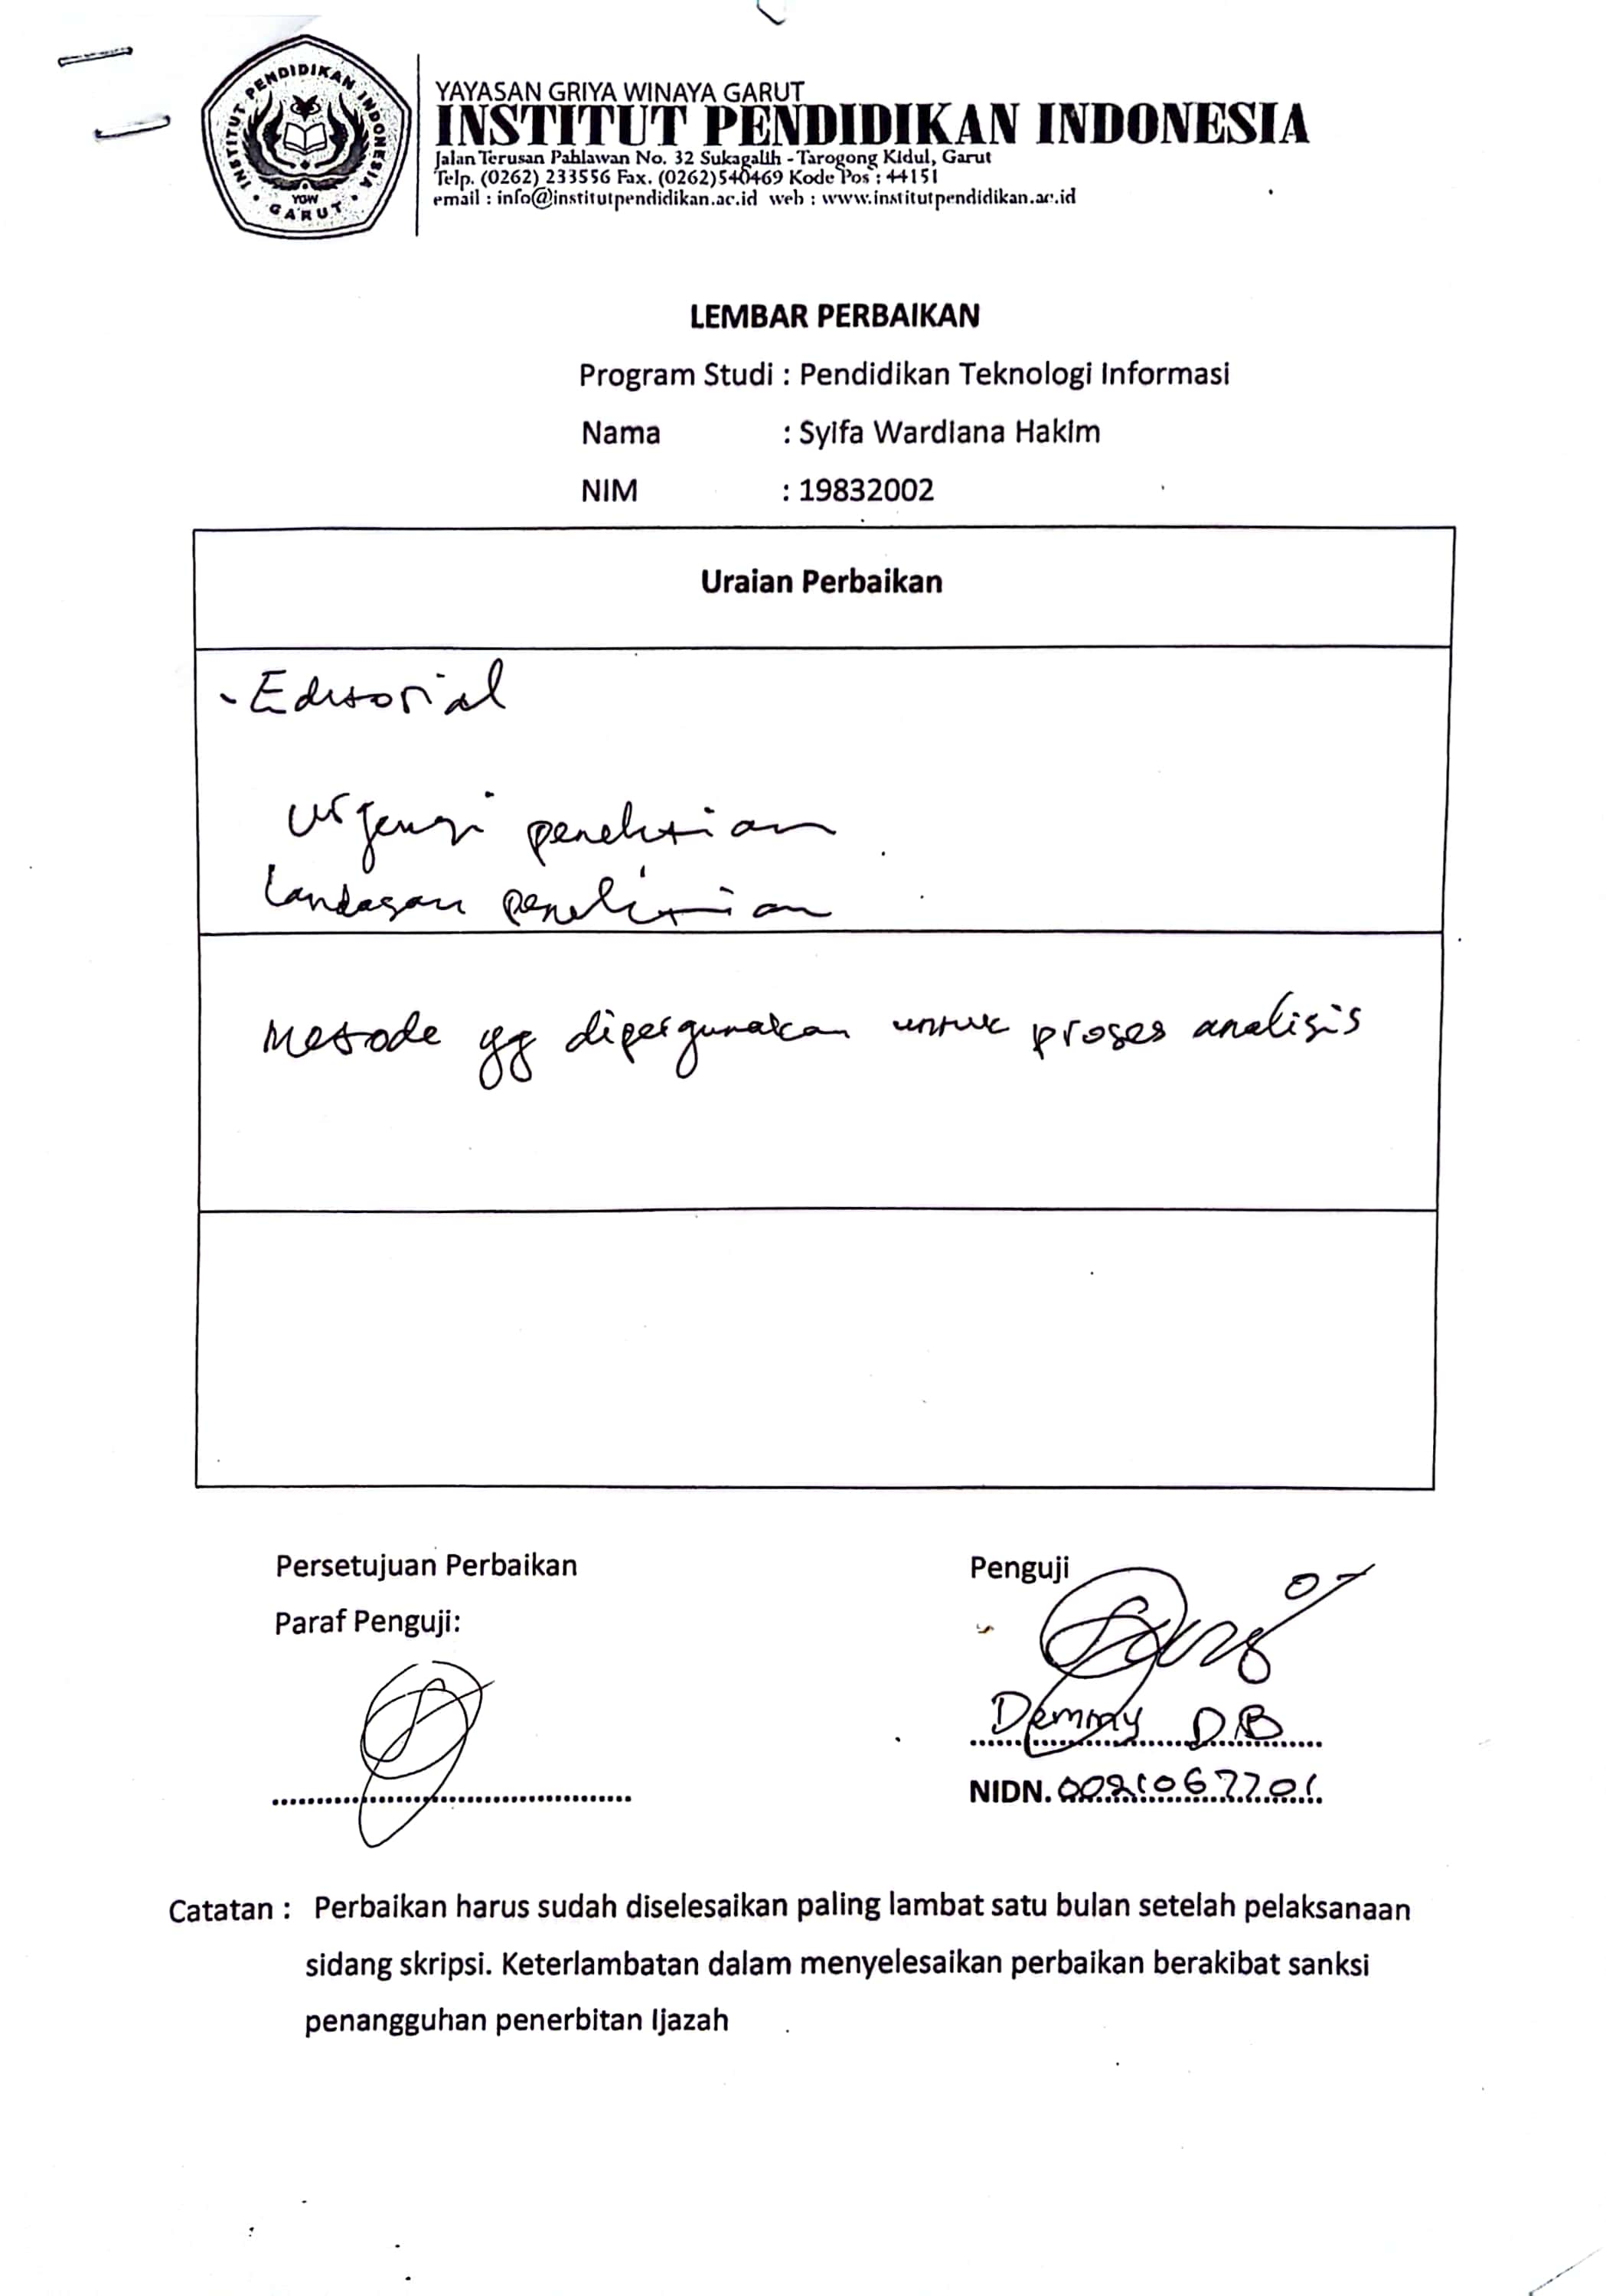 INSTITUT PENDIDIKAN INDONESIA
YGW
GARUT
YAYASAN GRIYA WINAYA GARUT
INSTITUT PENDIDIKAN INDONESIA
Jalan Terusan Pahlawan No. 32 Sukagalih - Tarogong Kidul, Garut
Telp. (0262) 233556 Fax. (0262)540469 Kode Pos : 44151
email : info@institutpendidikan.ac.id web : www.institutpendidikan.ac.id
LEMBAR PERBAIKAN
Program Studi : Pendidikan Teknologi Informasi
Nama : Syifa Wardiana Hakim
NIM : 19832002
Uraian Perbaikan
- Editorial
Urgensi penelitian
Landasan penelitian
Metode yg dipergunakan untuk proses analisis
Persetujuan Perbaikan
Penguji
Paraf Penguji:
Demmy DB
NIDN. 0021067701
Catatan : Perbaikan harus sudah diselesaikan paling lambat satu bulan setelah pelaksanaan
sidang skripsi. Keterlambatan dalam menyelesaikan perbaikan berakibat sanksi
penangguhan penerbitan Ijazah